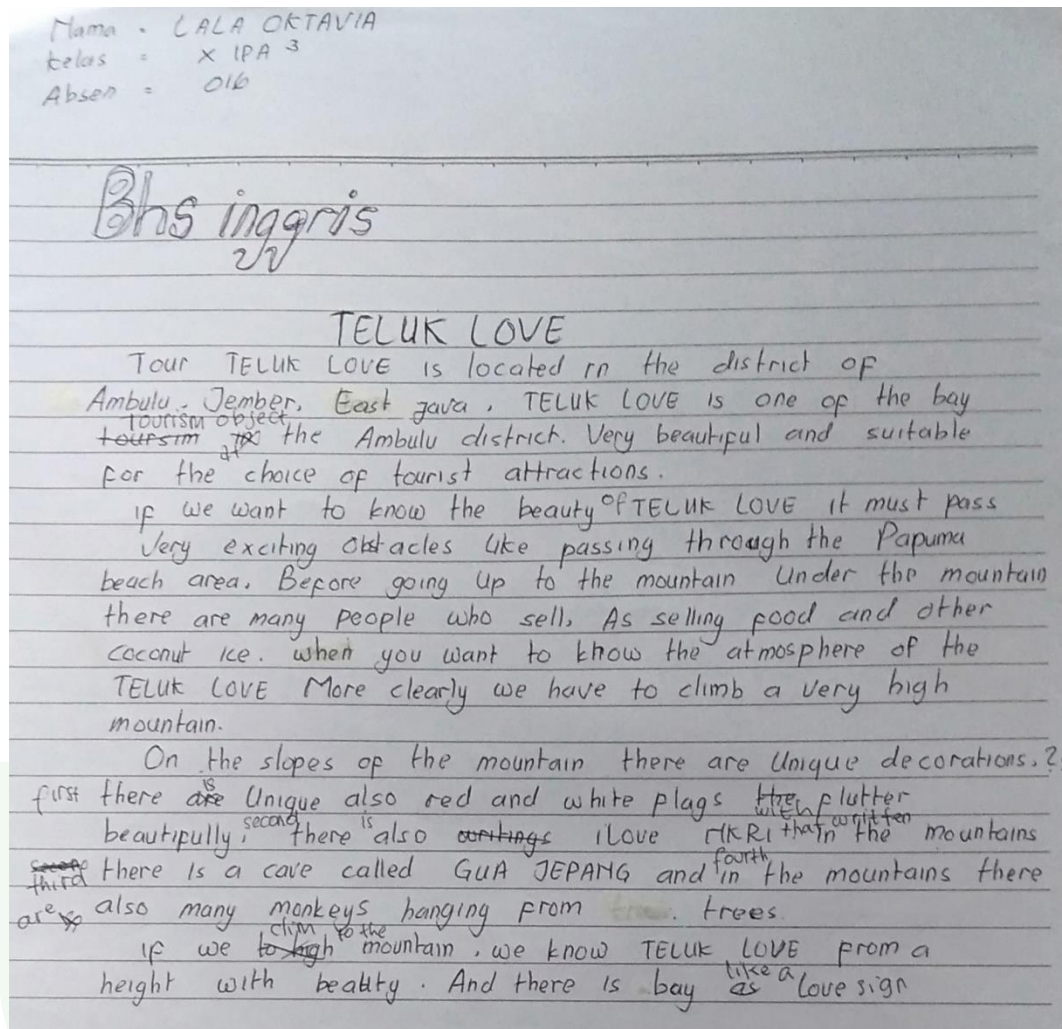 Nama : LALA OKTAVIA
kelas : X IPA 3
Absen : 016
Bhs inggris
TELUK LOVE
Tour TELUK LOVE is located in the district of
Ambulu. Jember, East java, TELUK LOVE is one of the bay
toursim Tourism object at the Ambulu district. Very beautiful and suitable
for the choice of tourist attractions.
if we want to know the beauty of TELUK LOVE it must pass
Very exciting obstacles like passing through the Papuma
beach area. Before going up to the mountain Under the mountain
there are many people who sell, As selling food and other
coconut ice. when you want to know the atmosphere of the
TELUK LOVE More clearly we have to climb a very high
mountain.
On the slopes of the mountain there are Unique decorations.?
first there are is Unique also red and white flags with flutter
beautifully, second there is also writings i love NKRI that written in the mountains
third there is a cave called GUA JEPANG and fourth in the mountains there
are also many monkeys hanging from trees.
if we to high clim to the mountain, we know TELUK LOVE from a
height with beauty. And there is bay as like a love sign